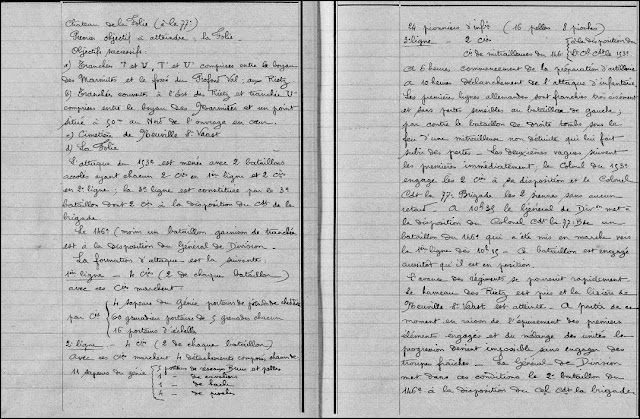 Château de la Folie (à la 77e)
Premier objectif à atteindre : la Folie.
Objectifs successifs :
a) Tranchées T et U, T' et U' comprises entre le boyau
des Marmites et le fossé du Profond Val, aux Rietz
b) Tranchées ouvertes à l'Est des Rietz et tranchée V
comprises entre le boyau des Marmites et un point
situé à 50m au Nord de l'ouvrage en cœur.
c) Cimetière de Neuville St Vaast
d) La Folie
L'attaque du 153e est menée avec 2 bataillons
accolés ayant chacun 2 Cies en 1ère ligne et 2 Cies
en 2e ligne ; la 3e ligne est constituée par le 3e
bataillon dont 2 Cies à la disposition du Ct de la
brigade.
Le 146e (moins un bataillon garnison de tranchées
est à la disposition du Général de Division.
La formation d'attaque est la suivante
1ère ligne - 4 Cies (2 de chaque bataillon)
avec ces Cies marchent :
par Cie
4 sapeurs du Génie porteurs de pétards de cheddite
60 grenadiers porteurs de 5 grenades chacun
16 porteurs d'échelle
2e ligne - 4 Cies (2 de chaque bataillon)
Avec ces Cies marchent 4 détachements composés chacun de
11 sapeurs du génie
5 porteurs de réseaux Brun et pelles
1 de cisailles
1 de hache
4 de pioches
24 pionniers d'infie (16 pelles 8 pioches)
3e ligne - 2 Cies
Cie de mitrailleuses du 146
à la disposition du
Lt Cel Ct le 153e
A 6 heures commencement de la préparation d'artillerie
A 10 heures déclanchement de l'attaque d'infanterie.
Les premières lignes allemandes sont franchies très aisément
et sans pertes sensibles au bataillon de gauche ;
par contre le bataillon de droite tombe sous le
feu d'une mitrailleuse non détruite qui lui fait
subir des pertes - Les deuxièmes vagues suivent
les premières immédiatement ; le Colonel du 153e
engage les 2 Cies à sa disposition et le Colonel
Cdt la 77e Brigade les 2 siennes sans aucun
retard - A 10h35 le Général de Divon met à
la disposition du Colonel Cdt la 77e Bde un
bataillon du 146e qui a été mis en marche vers
la 1ère ligne dès 10h15 - Ce bataillon est engagé
aussitôt qu'il est en position.
L'avance des régiments se poursuit rapidement
le hameau des Rietz est pris et la lisière de
Neuville St Vaast est atteinte - A partir de ce
moment en raison de l'épuisement des premiers
éléments engagés et du mélange des unités la
progression devient impossible sans engager des
troupes fraîches - Le Général de Division
met dans ces conditions le 2e bataillon du
146e à la disposition du Cel Cdt la brigade